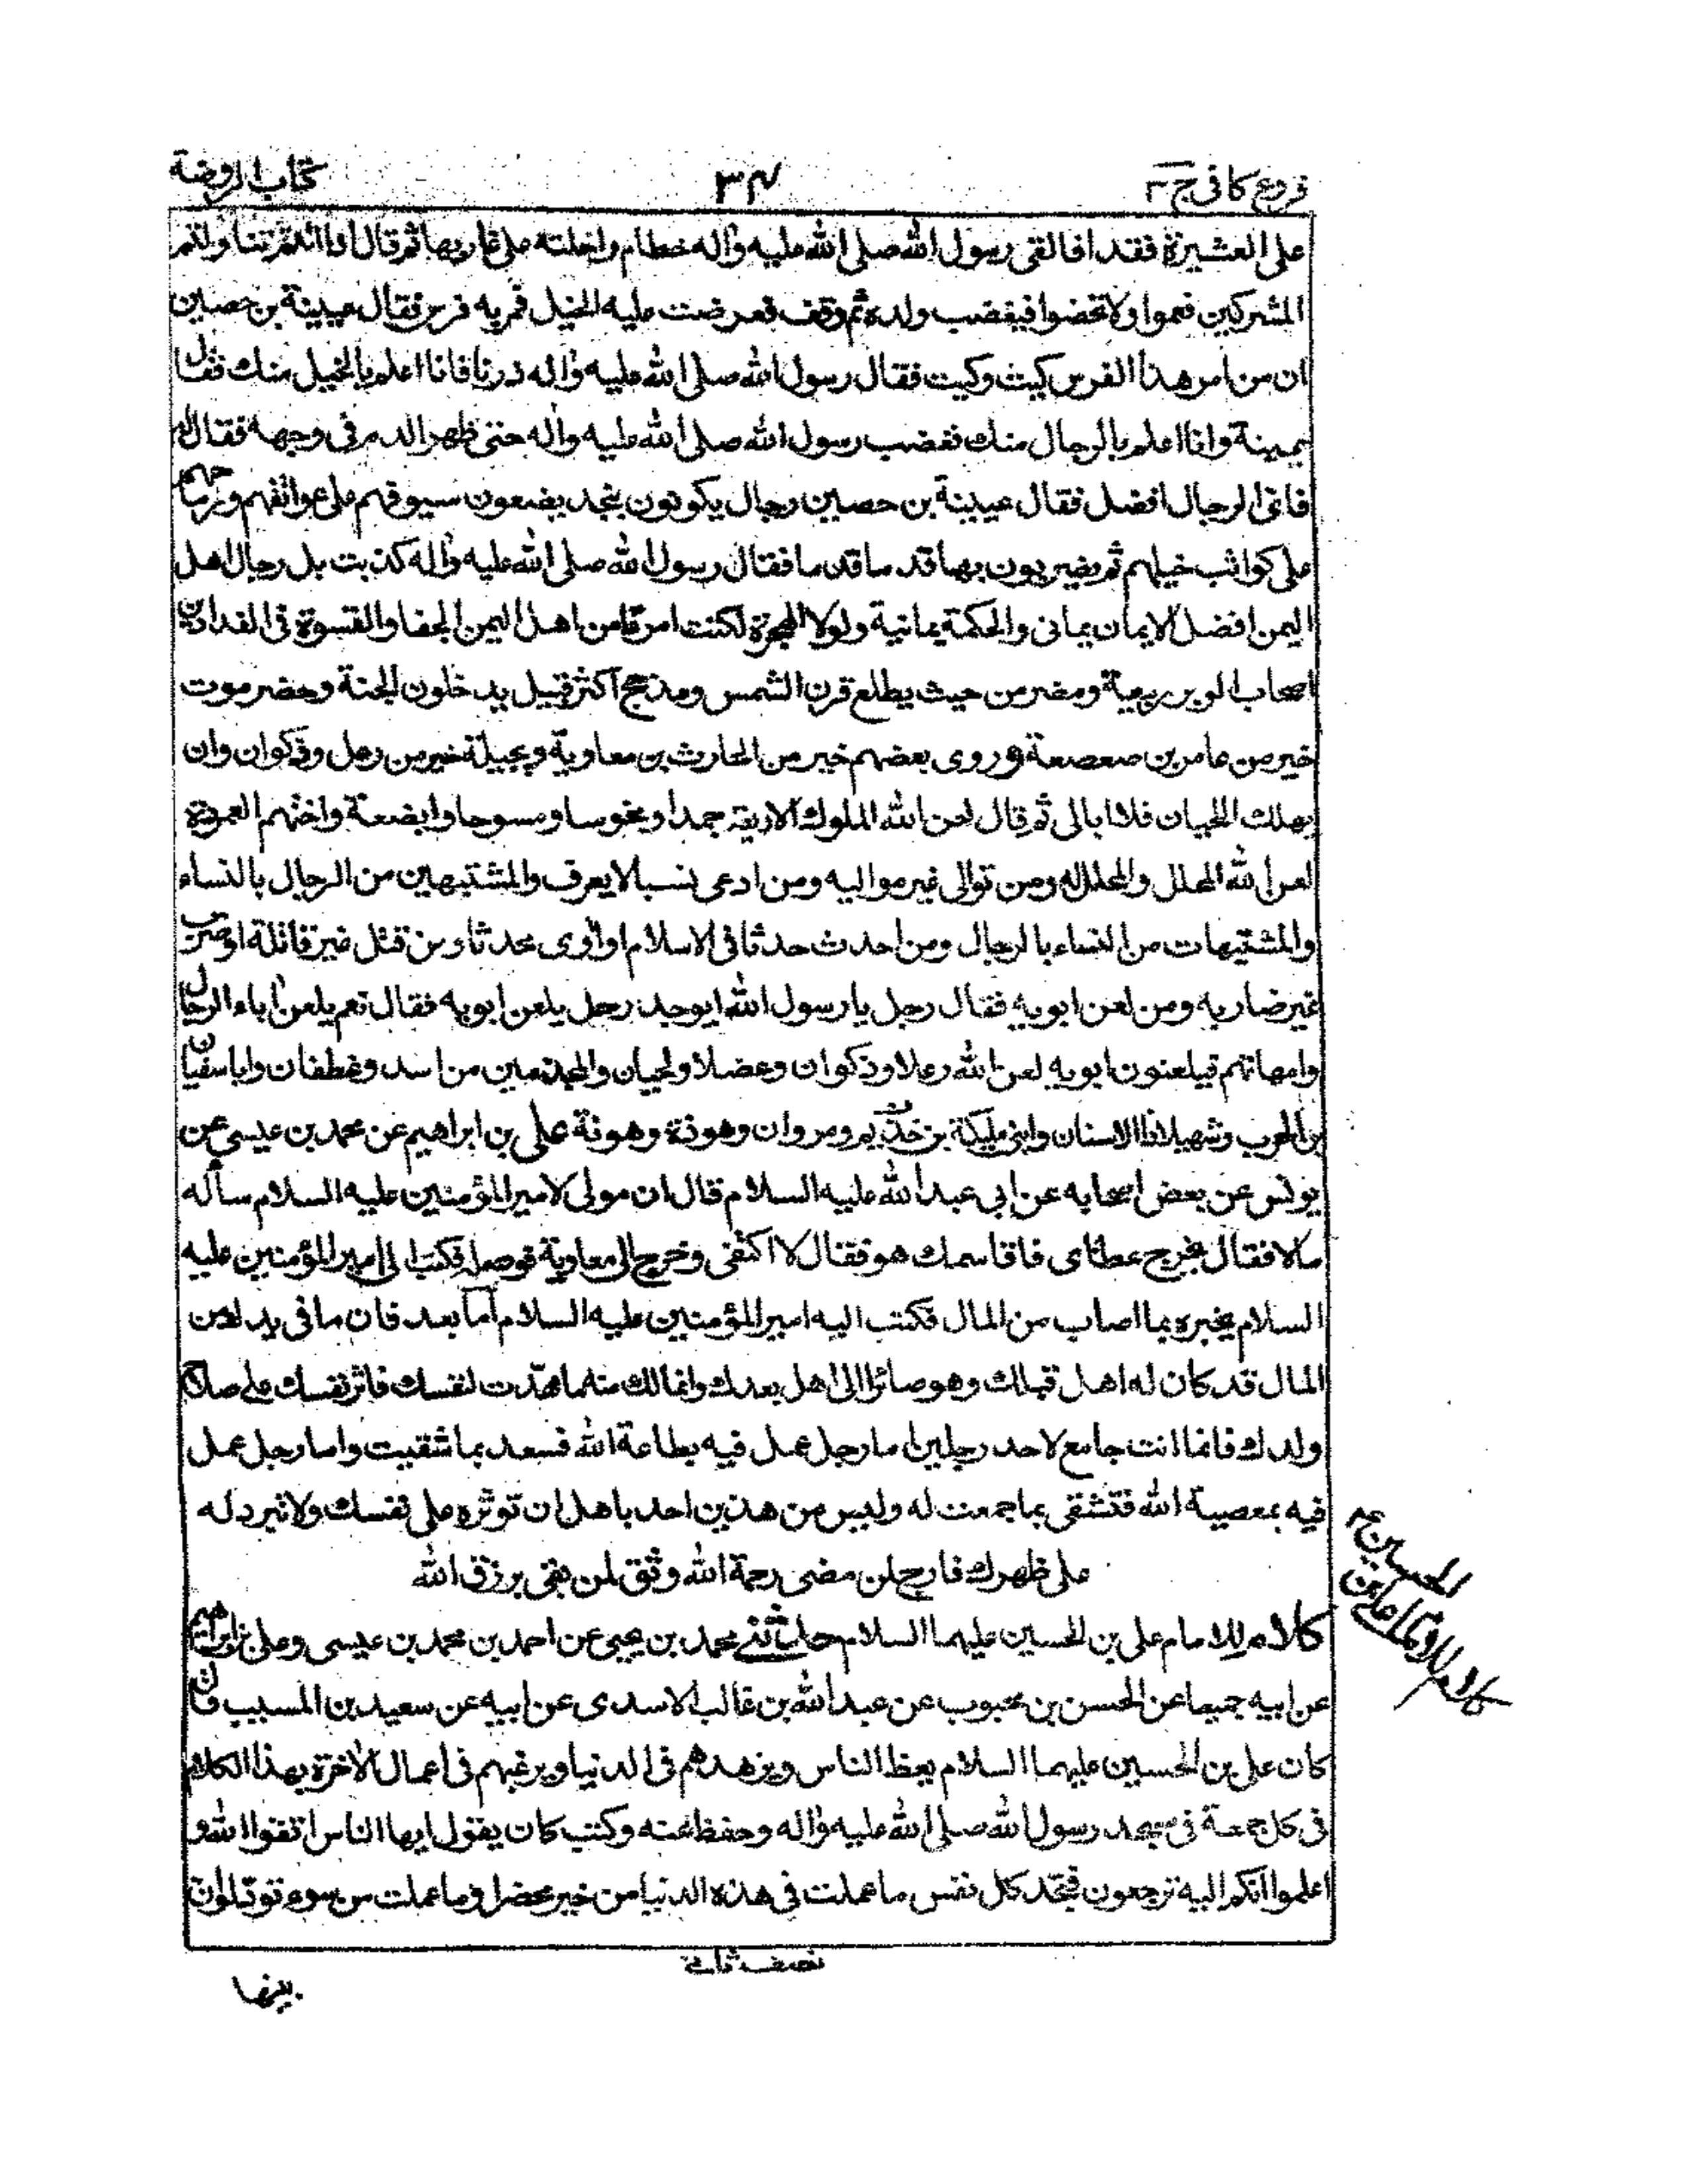 فروع كافى ج ٣
٣٤
كتاب الروضة
على العشيرة فقدا فالقى رسول الله صلى الله عليه وآله خطام راحلته على غاربها ثم قال اذا انتم تناولتم
المشركين فعموا ولا تخصوا فيغضب ولده ثم وقف فعرضت عليه الخيل فمر به فرس فقال عيينة بن حصين
ان من امر هذا الفرس كيت وكيت فقال رسول الله صلى الله عليه وآله ذرنا فانا اعلم بالخيل منك فقال
عيينة وانا اعلم بالرجال منك فغضب رسول الله صلى الله عليه وآله حتى ظهر الدم فى وجهه فقال له
فاى الرجال افضل فقال عيينة بن حصين رجال يكونون بنجد يضعون سيوفهم على عواتقهم ورماحهم
على كواثب خيلهم ثم يضربون بها قدما قدما فقال رسول الله صلى الله عليه وآله كذبت بل رجال اهل
اليمن افضل الايمان يمانى والحكمة يمانية ولولا الهجرة لكنت امرءا من اهل اليمن الجفا والقسوة فى الفدادين
اصحاب الوبر ربيعة ومضر من حيث يطلع قرن الشمس ومذحج اكثر قبيل يدخلون الجنة وحضرموت
خير من عامر بن صعصعة وروى بعضهم خير من الحارث بن معاوية وبجيلة خير من رعل وذكوان وان
يهلك لحيان فلا ابالى ثم قال لعن الله الملوك الاربعة جمدا ومخوسا ومسوحا وابضعة واختهم العمردة
لعن الله المحلل والمحلل له ومن توالى غير مواليه ومن ادعى نسبا لا يعرف والمشتبهين من الرجال بالنساء
والمشتبهات من النساء بالرجال ومن احدث حدثا فى الاسلام او آوى محدثا ومن قتل غير قاتله او ضرب
غير ضاربه ومن لعن ابويه فقال رجل يا رسول الله ايوجد رجل يلعن ابويه فقال نعم يلعن آباء الرجال
وامهاتهم فيلعنون ابويه لعن الله رعلا وذكوان وعضلا ولحيان والمجذمين من اسد وغطفان وابا سفيان
بن الحرب وشهيلا ذا الاسنان وابنى مليكة بن خديم ومروان وهوذة وهونة على بن ابراهيم عن محمد بن عيسى عن
يونس عن بعض اصحابه عن ابى عبد الله عليه السلام قال ان مولى لامير المؤمنين عليه السلام سأله
مالا فقال يخرج عطائى فاقاسمك هو فقال لا اكتفى وخرج الى معاوية فوصله فكتب الى امير المؤمنين عليه
السلام يخبره بما اصاب من المال فكتب اليه امير المؤمنين عليه السلام اما بعد فان ما فى يدك من
المال قد كان له اهل قبلك وهو صائر الى اهل بعدك وانما لك منه ما مهدت لنفسك فاثر نفسك على صلاح
ولدك فانما انت جامع لاحد رجلين اما رجل عمل فيه بطاعة الله فسعد بما شقيت واما رجل عمل
فيه بمعصية الله فتشقى بما جمعت له وليس من هذين احد باهل ان توثره على نفسك ولا تبرد له
على ظهرك فارج لمن مضى رحمة الله وثق لمن بقى برزق الله
كلام للامام على بن الحسين عليهما السلام حدثنى محمد بن يحيى عن احمد بن محمد بن عيسى وعلى بن ابراهيم
عن ابيه جميعا عن الحسن بن محبوب عن عبد الله بن غالب الاسدى عن ابيه عن سعيد بن المسيب قال
كان على بن الحسين عليهما السلام يعظ الناس ويزهدهم فى الدنيا ويرغبهم فى اعمال الآخرة بهذا الكلام
فى كل جمعة فى مسجد رسول الله صلى الله عليه وآله وحفظ عنه وكتب كان يقول ايها الناس اتقوا الله و
اعلموا انكم اليه ترجعون فتجد كل نفس ما عملت فى هذه الدنيا من خير محضرا وما عملت من سوء تود لو ان
كلام للامام على بن
الحسين ع
نصف ثانى
بينها